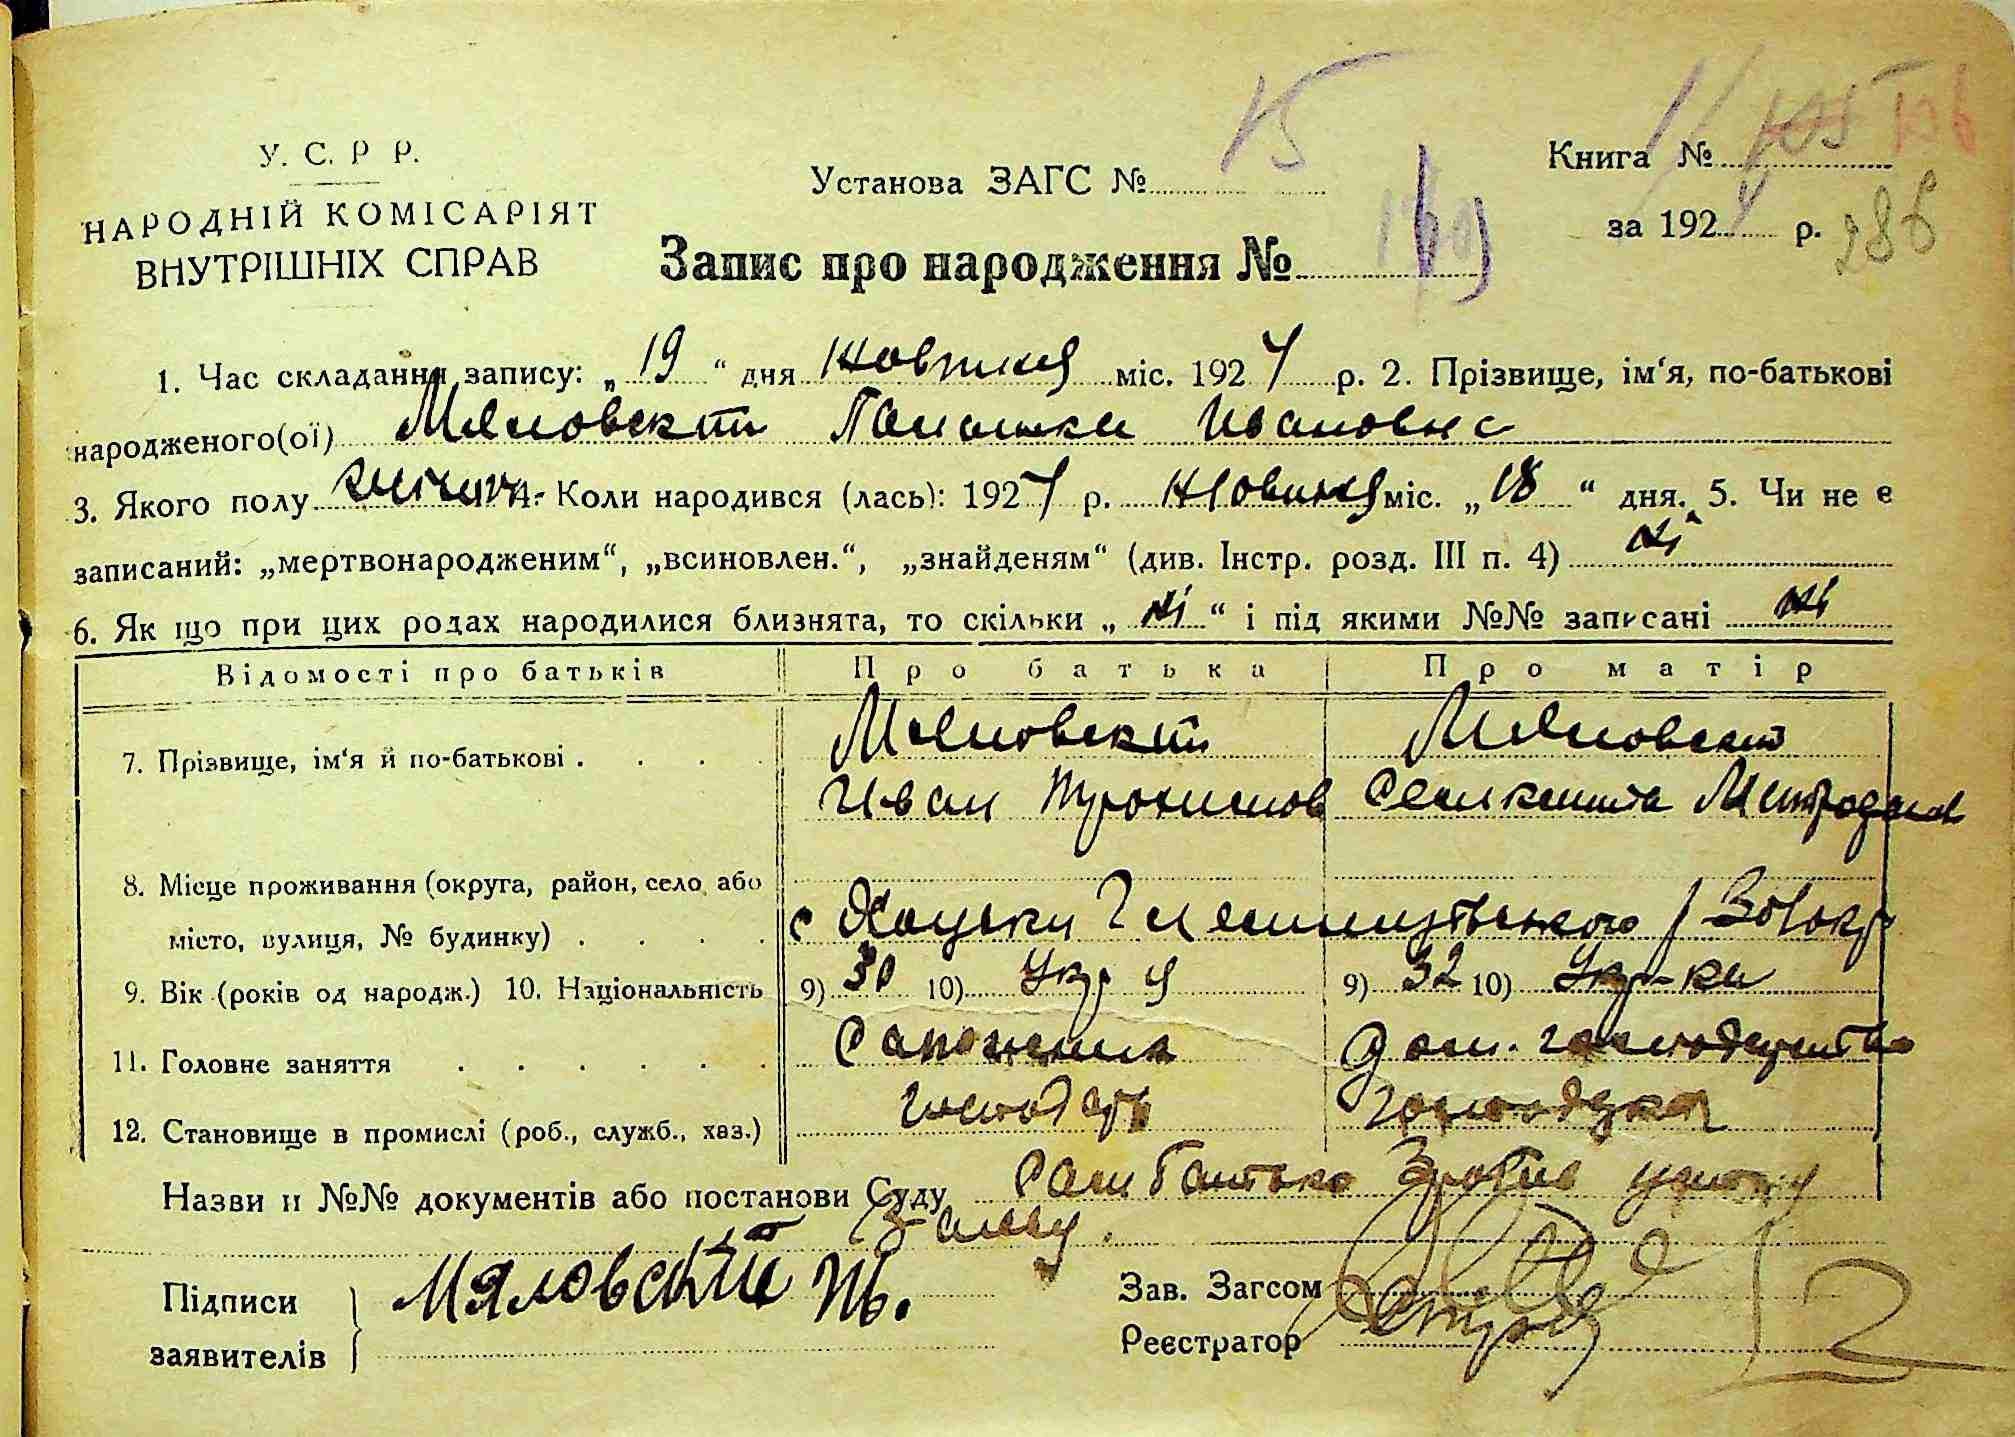 У. С. Р Р.
НАРОДНІЙ КОМІСАРІЯТ
ВНУТРІШНІХ СПРАВ
Установа ЗАГС № 15
Книга №
за 192 р. 286
Запис про народження №
1. Час складання запису: „ 19 “ дня жовтня міс. 1927 р. 2. Прізвище, ім‘я, по-батькові
народженого(ої) Мяловский Ивановна
3. Якого полу 4. Коли народився (лась): 1927 р. жовтня міс. „ 18 “ дня. 5. Чи не є
записаний: „мертвонародженим“, „всиновлен.“, „знайденям“ (див. Інстр. розд. III п. 4) ні
6. Як що при цих родах народилися близнята, то скільки „ ні “ і під якими №№ записані ні
Відомості про батьків Про батька Про матір
7. Прізвище, ім‘я й по-батькові . . . . Мяловский Мяловская
Иван Митрофанов
8. Місце проживання (округа, район, село або
місто, вулиця, № будинку) . . . . с
9. Вік (років од народж.) 10. Національність 9) 30 10) Укр 9) 32 10) Укр-ка
11. Головне заняття . . . . . . Сапожник Дом. господарство
12. Становище в промислі (роб., служб., хаз.) господарь
Назви и №№ документів або постанови Суду Сам батько зробив
заяву.
Підписи
заявителів
Мяловский
Зав. Загсом
Реєстратор